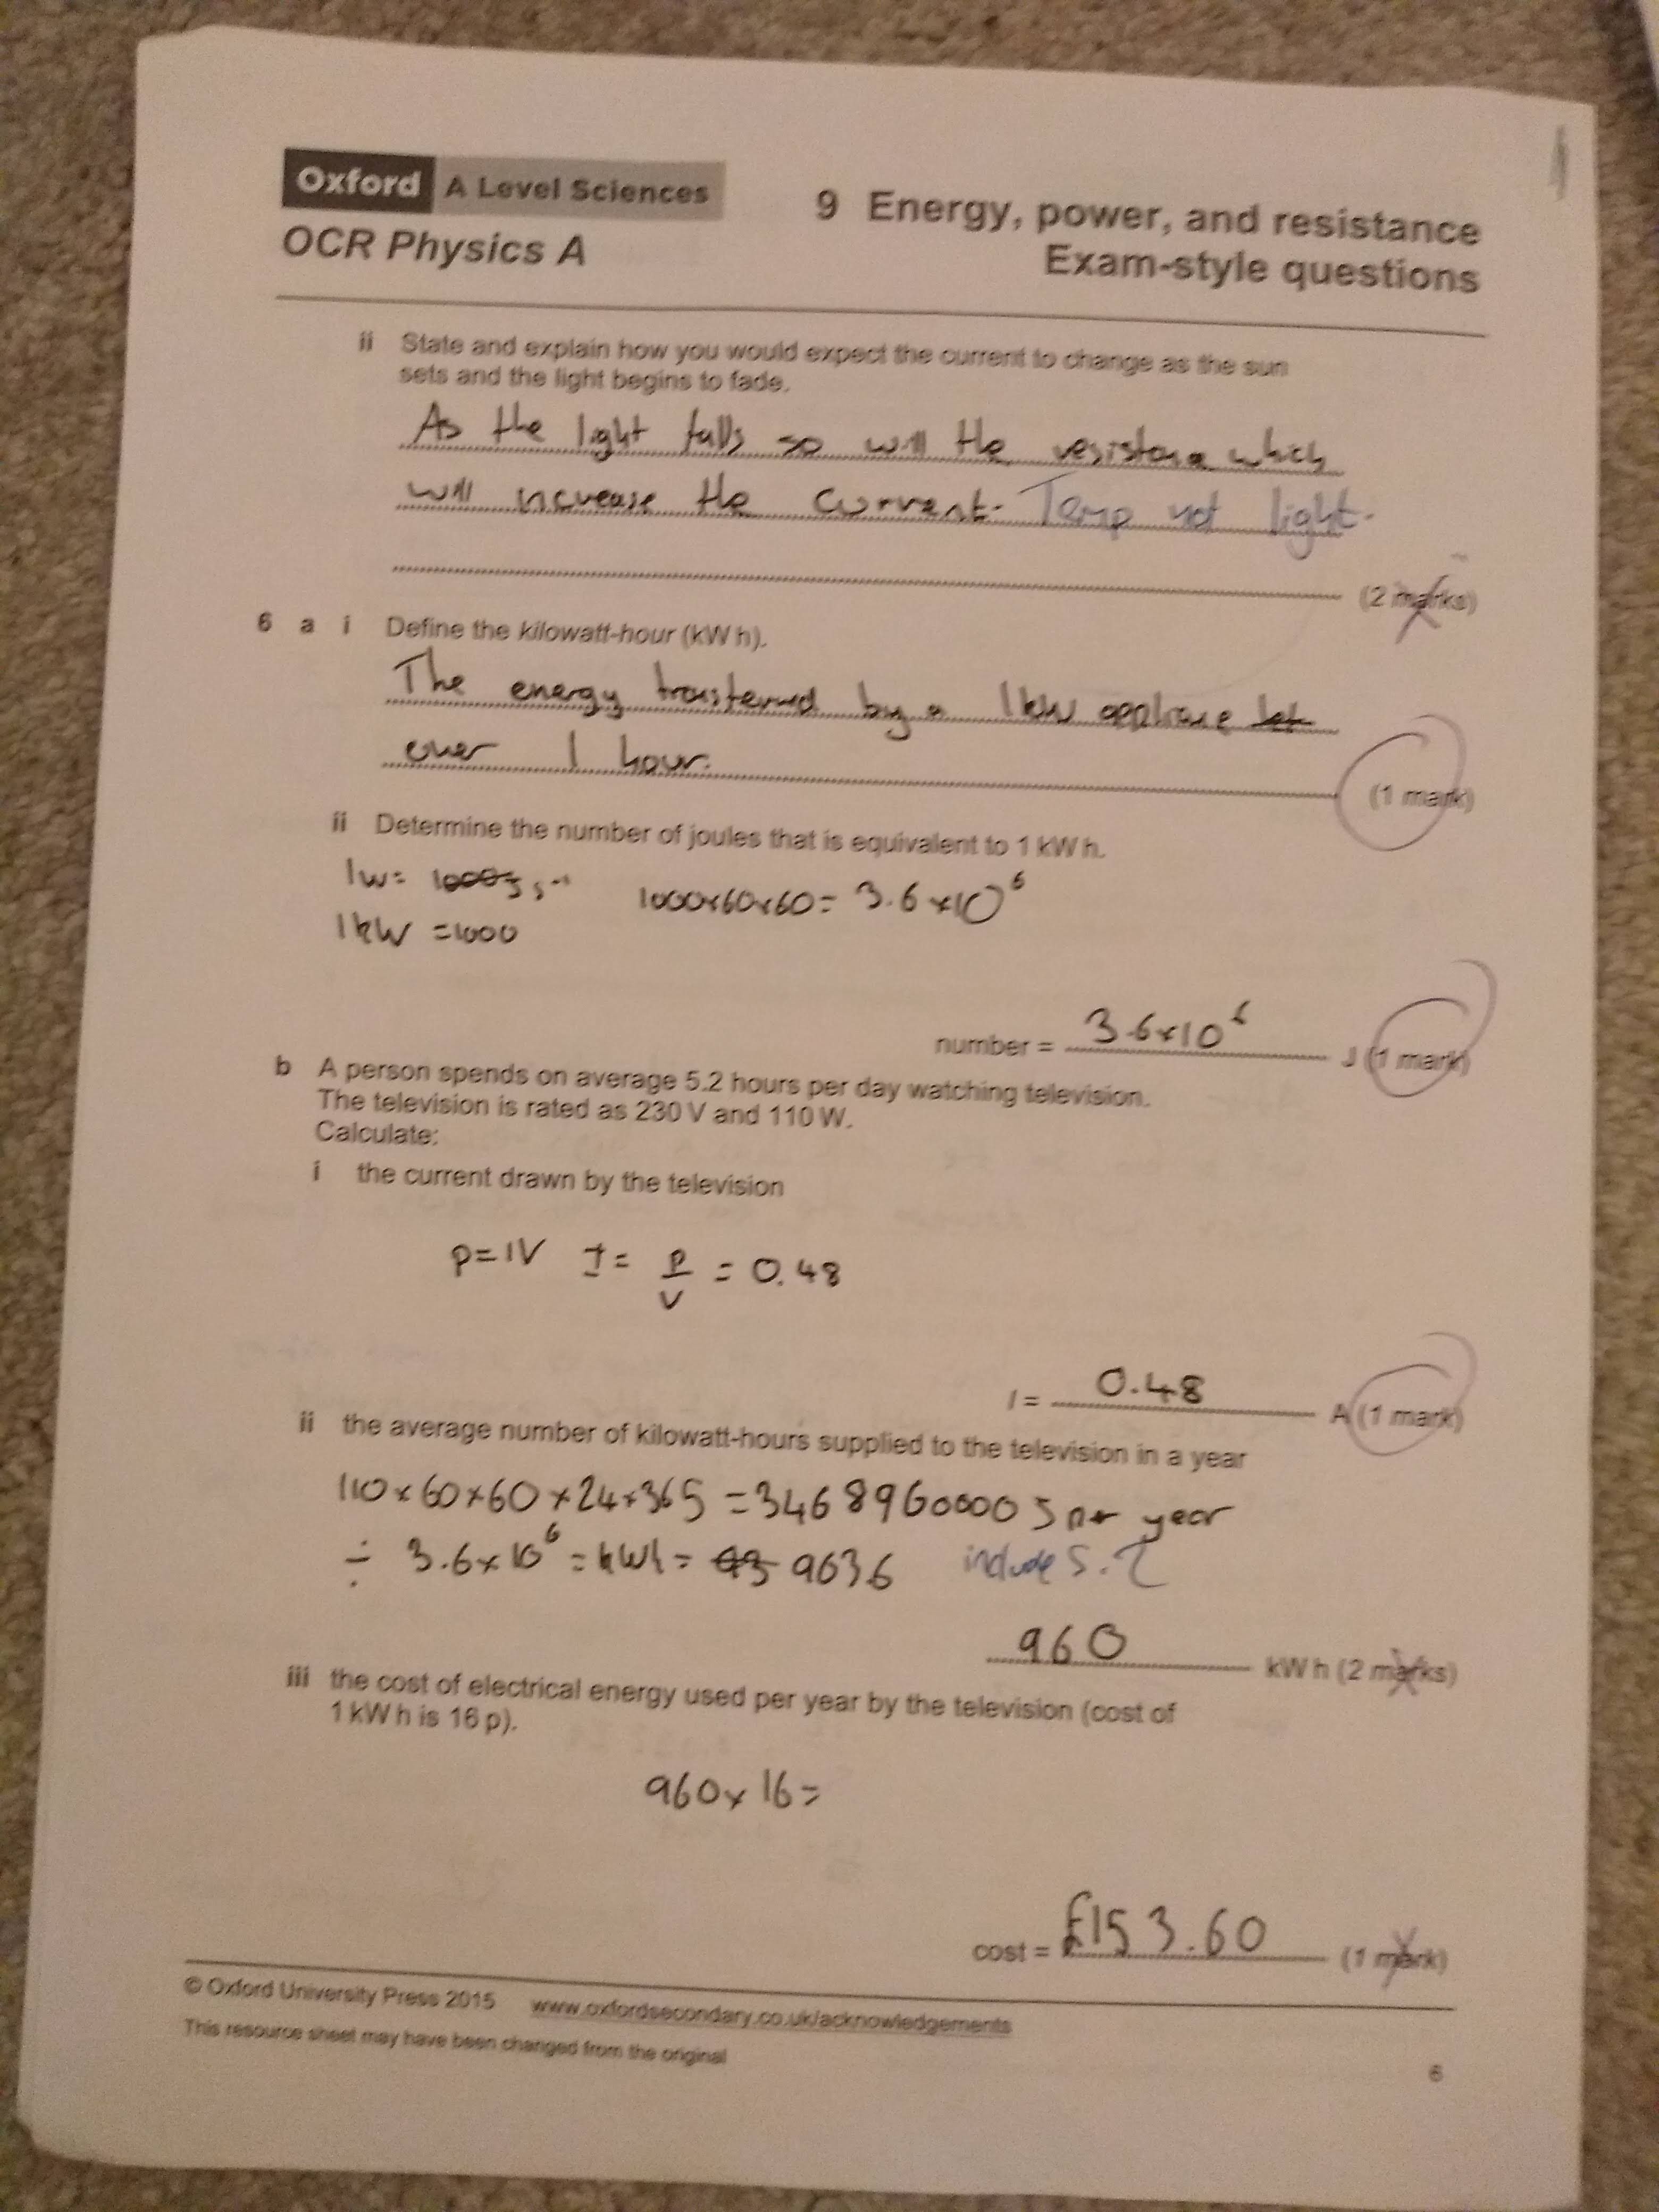 Oxford A Level Sciences
OCR Physics A
9 Energy, power, and resistance
Exam-style questions
ii State and explain how you would expect the current to change as the sun
sets and the light begins to fade.
As the light falls so will the resistance which
will increase the current. Temp not light.
(2 marks)
6 a i Define the kilowatt-hour (kW h).
The energy transferred by a 1kW appliance
over 1 hour.
(1 mark)
ii Determine the number of joules that is equivalent to 1 kW h.
1w= 1000J s⁻¹ 1000x60x60= 3.6 x10⁶
1kW =1000
number = 3.6x10⁶ J (1 mark)
b A person spends on average 5.2 hours per day watching television.
The television is rated as 230 V and 110 W.
Calculate:
i the current drawn by the television
P=IV I= P/V = 0.48
I = 0.48 A (1 mark)
ii the average number of kilowatt-hours supplied to the television in a year
110x60x60x24x365 =3468960000 J per year
÷ 3.6x10⁶ = kWh = 963.6 include 5.2
960 kW h (2 marks)
iii the cost of electrical energy used per year by the television (cost of
1 kW h is 16 p).
960x 16=
cost = £153.60 (1 mark)
© Oxford University Press 2015 www.oxfordsecondary.co.uk/acknowledgements
This resource sheet may have been changed from the original
6